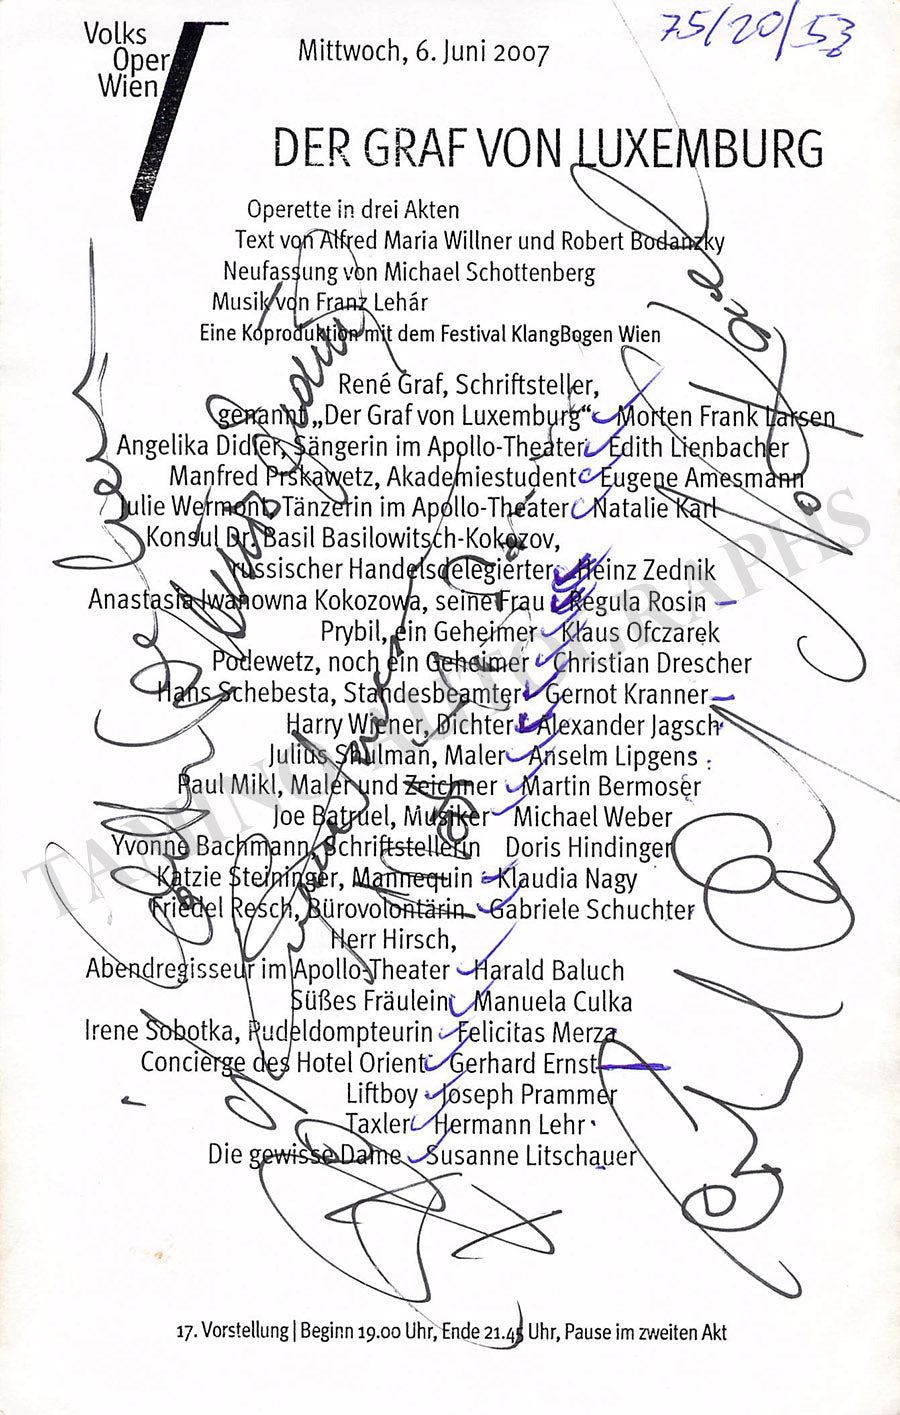 Volks
Oper
Wien
75/20/53
Mittwoch, 6. Juni 2007
DER GRAF VON LUXEMBURG
Operette in drei Akten
Text von Alfred Maria Willner und Robert Bodanzky
Neufassung von Michael Schottenberg
Musik von Franz Lehár
Eine Koproduktion mit dem Festival KlangBogen Wien
René Graf, Schriftsteller,
genannt „Der Graf von Luxemburg“ Morten Frank Larsen
Angelika Didier, Sängerin im Apollo-Theater Edith Lienbacher
Manfred Prskawetz, Akademiestudent Eugene Amesmann
Julie Wermont, Tänzerin im Apollo-Theater Natalie Karl
Konsul Dr. Basil Basilowitsch-Kokozov,
russischer Handelsdelegierter Heinz Zednik
Anastasia Iwanowna Kokozowa, seine Frau Regula Rosin
Prybil, ein Geheimer Klaus Ofczarek
Podewetz, noch ein Geheimer Christian Drescher
Hans Schebesta, Standesbeamter Gernot Kranner
Harry Wiener, Dichter Alexander Jagsch
Julius Shulman, Maler Anselm Lipgens
Paul Mikl, Maler und Zeichner Martin Bermoser
Joe Batruel, Musiker Michael Weber
Yvonne Bachmann, Schriftstellerin Doris Hindinger
Katzie Steininger, Mannequin Klaudia Nagy
Friedel Resch, Bürovolontärin Gabriele Schuchter
Herr Hirsch,
Abendregisseur im Apollo-Theater Harald Baluch
Süßes Fräulein Manuela Culka
Irene Sobotka, Pudeldompteurin Felicitas Merza
Concierge des Hotel Orient Gerhard Ernst
Liftboy Joseph Prammer
Taxler Hermann Lehr
Die gewisse Dame Susanne Litschauer
17. Vorstellung | Beginn 19.00 Uhr, Ende 21.45 Uhr, Pause im zweiten Akt
TAMINO AUTOGRAPHS